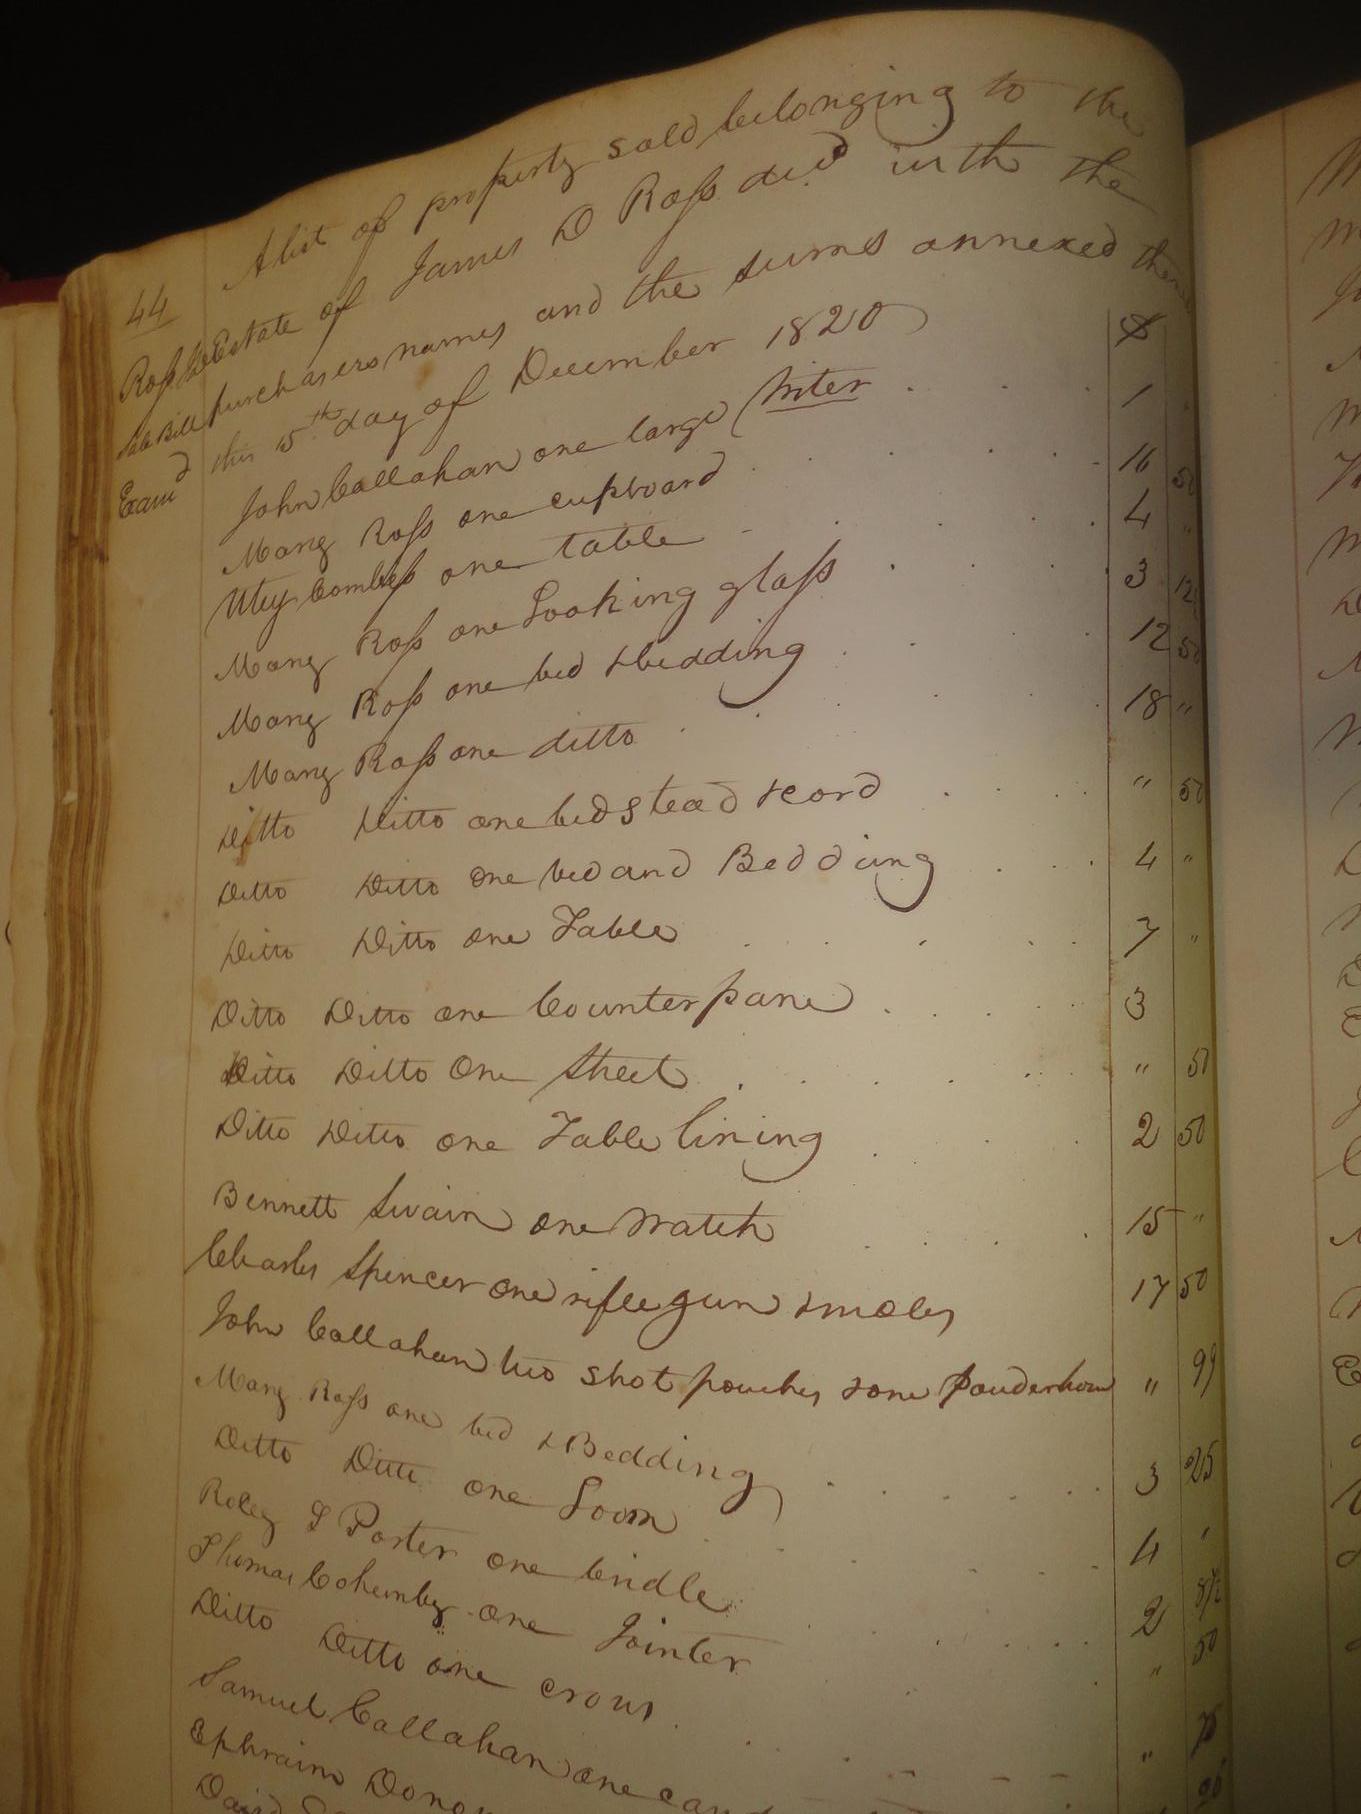 44
A list of property sold belonging to the
Estate of James D Ross decd with the
purchasers names and the sums annexed
this 15th day of December 1820
Ross
Sale Bill
Examd
$
John Callahan one large 1 "
Mang Ross one cupboard 16 50
Utey Combess one table 4 "
Mang Ross one Looking glass 3 12½
Mang Ross one bed & bedding 12 50
Mang Ross one ditto 18 "
Ditto Ditto one bedstead & cord " 50
Ditto Ditto one bed and Bedding 4 "
Ditto Ditto one Table 7 "
Ditto Ditto one Counterpane 3
Ditto Ditto One Sheet " 50
Ditto Ditto one Table lining 2 50
Bennett Swain one watch 15 "
Charles Spencer one rifle gun & moles 17 50
John Callahan two shot pouches & one Pouderhorn " 99
Mang Ross one bed & Bedding 3 25
Ditto Ditto one Loom 4 "
Roley S Porter one bridle 2 87½
Thomas one Jointer " 50
Ditto Ditto one crous " 75
Samuel Callahan one
Ephraim
David